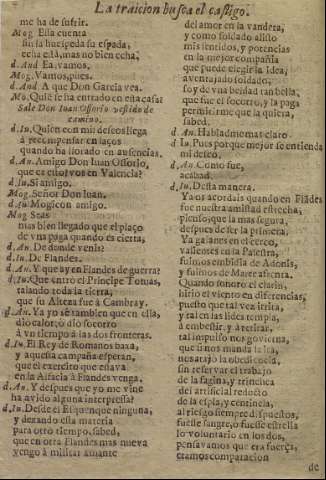 La traicion busca el castigo.
me ha de sufrir.
Mog. Essa cuenta
sin la huespeda su espada,
echa està, mas no bien echa,
d. And. Ea, vamos,
Mog. Vamos, pues.
d. And. A que Don Garcia vea.
Mo. Quiē se ha entrado en esta casa?
Sale Don Iuan Ossorio vestido de
camino.
d. Iu. Quien con mil deseos llega
à recompensar en laços
quando ha llorado en ausencias.
d. An. Amigo Don Iuan Ossorio,
que es esto? vos en Valencia?
d. Iu. Si amigo.
Mog. Señor Don Iuan.
d. Iu. Mogicon amigo.
Mog. Seas
mas bien llegado que el plaço
de vna paga quando es cierta,
d. An. De donde venis?
d. Iu. De Flandes.
d. An. Y que ay en Flandes de guerra?
d. Iu. Que entrò el Principe Tomas,
talando toda la tierra,
que su Alteza fue à Cambray.
d. An. Ya yo sè tambien que en ella,
diò calor, ò diò socorro
à vn tiempo à las dos fronteras.
d. Iu. El Rey de Romanos baxa,
y aquesta campaña esperan,
que el exercito que estava
en la Alsacia à Flandes venga.
d. An. Y despues que yo me vine
ha avido alguna interpressa?
d. Iu. Desde el Esquenque ninguna,
y dexando esta materia
para otro tiempo, sabed,
que en otra Flandes mas nueva
vengo à militar amante
del amor en la vandera,
y como soldado alisto
mis sentidos, y potencias
en la mejor compañia
que puede elegir la Idea;
aventajado soldado,
soy de vna beldad tan bella,
que fue el socorro, y la paga
permitirme que la quiera,
sabed.
d. An. Habladme mas claro.
d. Iu. Pues porque mejor se entienda
mi deseo.
d. An. Como fue,
acabad.
d. Iu. Desta manera.
Ya os acordais quando en Flādes
fue nuestra amistad estrecha,
pienso, que la mas segura,
despues de ser la primera,
Ya galanes en el cerco,
valientes en la Palestra,
fuimos embidia de Adonis,
y fuimos de Marte afrenta.
Quando sonoro el clarin,
hiriò el viento en diferencias,
puesto que tal vez irrita,
y tal en las lides templa,
à embestir, y à retirar,
tal impulso nos govierna,
que si nos manda la ira,
nos atajò la obediencia,
sin reservar el trabajo
de la fagina, y trinchea
del artificial reducto
de la espia, y centinela,
al riesgo siempre dispuestos,
fuesse sangre, ò fuesse estrella
lo voluntario en los dos,
pensavamos que era fuerça,
eramos comparacion
de